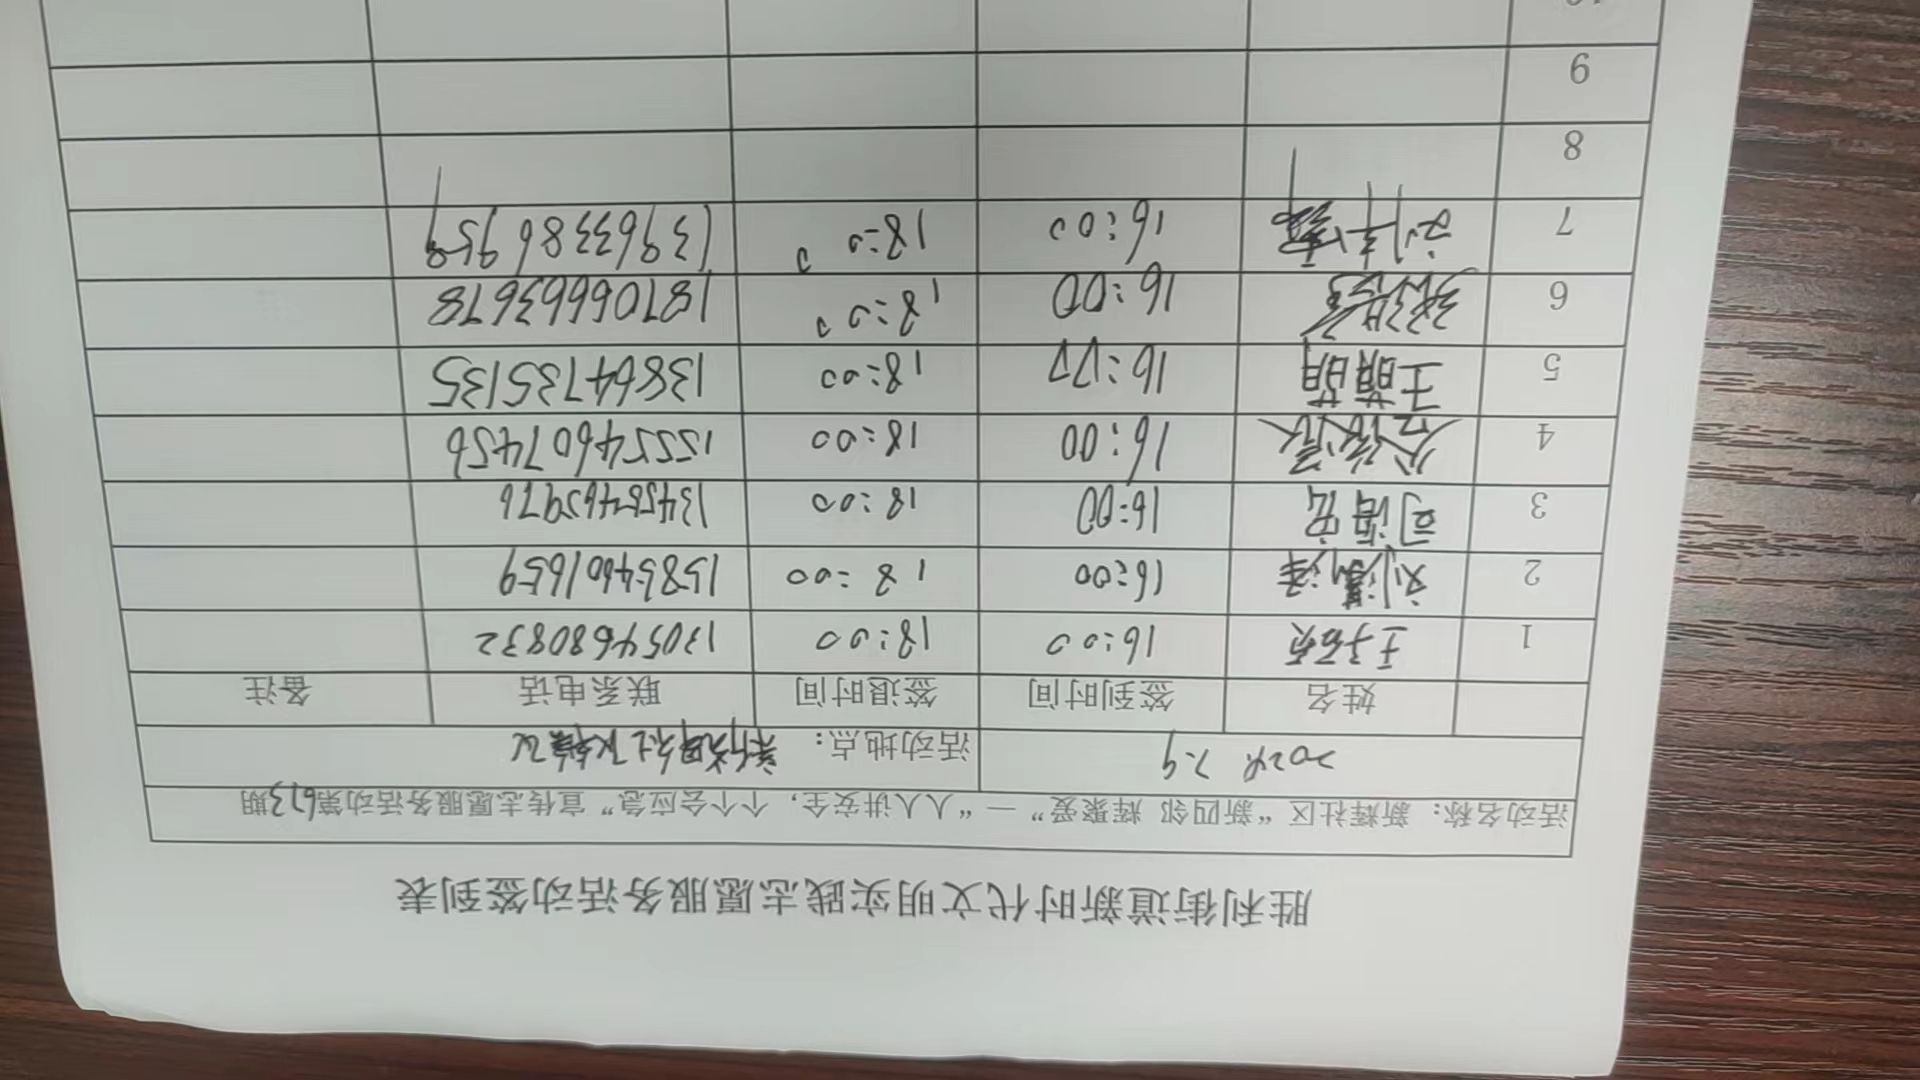 胜利街道新时代文明实践志愿服务活动签到表
活动名称：新辉社区“新四邻 辉聚爱”—“人人讲安全，个个会应急”宣传志愿服务活动第613期
7.9 活动地点：
姓名 签到时间 签退时间 联系电话 备注
1 16:00 18:00 13054680832
2 刘 16:00 18:00 15854601659
3 司海宏 16:00 18:00
4 16:00 18:00 15554607456
5 王萌萌 18:00 13864735135
6 16:00 18:00 18706663678
7 刘 16:00 18:00
8
9
10